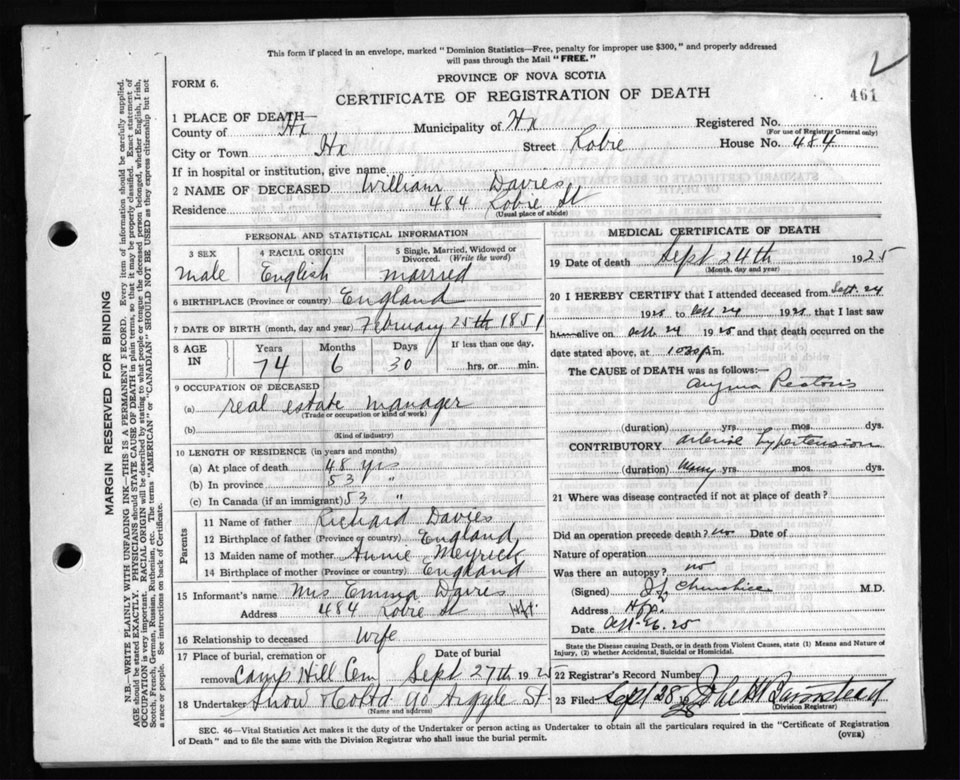 This form if placed in an envelope, marked "Dominion Statistics—Free, penalty for improper use $300," and properly addressed
will pass through the Mail "FREE."
PROVINCE OF NOVA SCOTIA
FORM 6.
CERTIFICATE OF REGISTRATION OF DEATH
461
1 PLACE OF DEATH—
County of Hx Municipality of Hx Registered No.
(For use of Registrar General only)
City or Town Hx Street Robie House No. 484
If in hospital or institution, give name
2 NAME OF DECEASED William Davies
Residence 484 Robie St
(Usual place of abide)
PERSONAL AND STATISTICAL INFORMATION
3 SEX 4 RACIAL ORIGIN 5 Single, Married, Widowed or Divorced. (Write the word)
Male English married
6 BIRTHPLACE (Province or country) England
7 DATE OF BIRTH (month, day and year) February 25th 1851
8 AGE IN Years Months Days If less than one day,
74 6 30 hrs. or min.
9 OCCUPATION OF DECEASED
(a) real estate manager
(Trade or occupation or kind of work)
(b)
(Kind of industry)
10 LENGTH OF RESIDENCE (in years and months)
(a) At place of death 48 yrs
(b) In province 53 "
(c) In Canada (if an immigrant) 53 "
Parents
11 Name of father Richard Davies
12 Birthplace of father (Province or country) England
13 Maiden name of mother Annie Meyrick
14 Birthplace of mother (Province or country) England
15 Informant's name Mrs Emma Davies
Address 484 Robie St
16 Relationship to deceased Wife
17 Place of burial, cremation or Date of burial
removal Camp Hill Cem Sept 27th 1925
18 Undertaker Snow & Co Ltd 90 Argyle St
(Name and address)
MEDICAL CERTIFICATE OF DEATH
19 Date of death Sept 24th 1925
(Month, day and year)
20 I HEREBY CERTIFY that I attended deceased from Sept. 24
1925 to Sept 24 1925 that I last saw
him alive on Sept 24 1925 and that death occurred on
date stated above, at m.
The CAUSE of DEATH was as follows:—
Angina Pectoris
(duration) yrs. mos. dys.
CONTRIBUTORY arterial hypertension
(duration) Many yrs. mos. dys.
21 Where was disease contracted if not at place of death?
Did an operation precede death? no Date of
Nature of operation
Was there an autopsy? no
(Signed) M.D.
Address
Date Sept. 26. 25
State the Disease causing Death, or in death from Violent Causes, state (1) Means and Nature of
Injury, (2) whether Accidental, Suicidal or Homicidal.
22 Registrar's Record Number
23 Filed Sept 28
(Division Registrar)
SEC. 46—Vital Statistics Act makes it the duty of the Undertaker or person acting as Undertaker to obtain all the particulars required in the "Certificate of Registration
of Death" and to file the same with the Division Registrar who shall issue the burial permit.
(OVER)
MARGIN RESERVED FOR BINDING
N.B.—WRITE PLAINLY WITH UNFADING INK—THIS IS A PERMANENT RECORD. Every item of information should be carefully supplied.
AGE should be stated EXACTLY. PHYSICIANS should STATE CAUSE OF DEATH in plain terms, so that it may be properly classified. Exact statement of
OCCUPATION is very important. RACIAL ORIGIN will be described by stating to what people or tongue the deceased person belonged, whether English, Irish,
Scotch, French, German, Russian, Ruthenian, etc. The terms "AMERICAN" or "CANADIAN" SHOULD NOT BE USED as they express citizenship but not
a race or people. See instructions on back of Certificate.